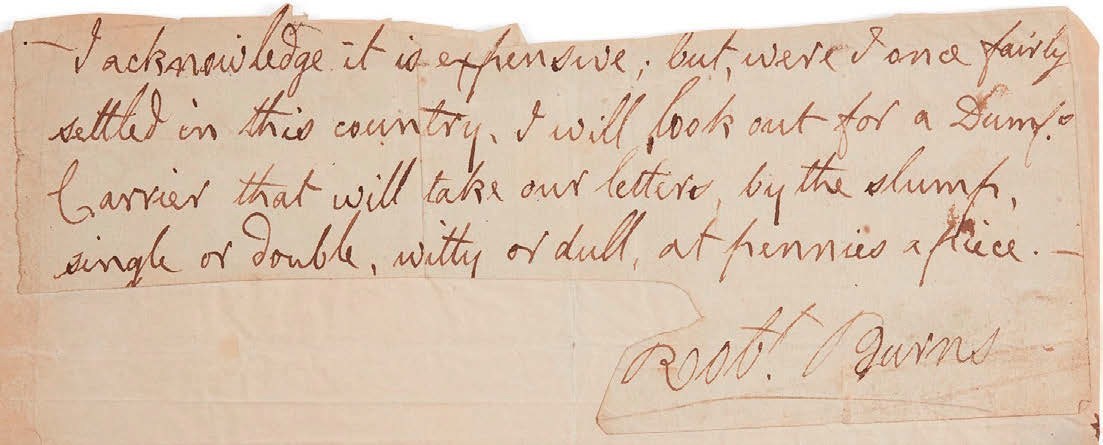 — I acknowledge it is expensive; but, were I once fairly
settled in this country, I will look out for a Dumf.s
Carrier that will take our letters, by the slump,
single or double, witty or dull, at pennies a piece. —
Robt. Burns